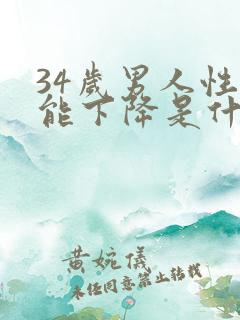 34歲男人性
能下降是什
黄婉儀
未经同意禁止转载